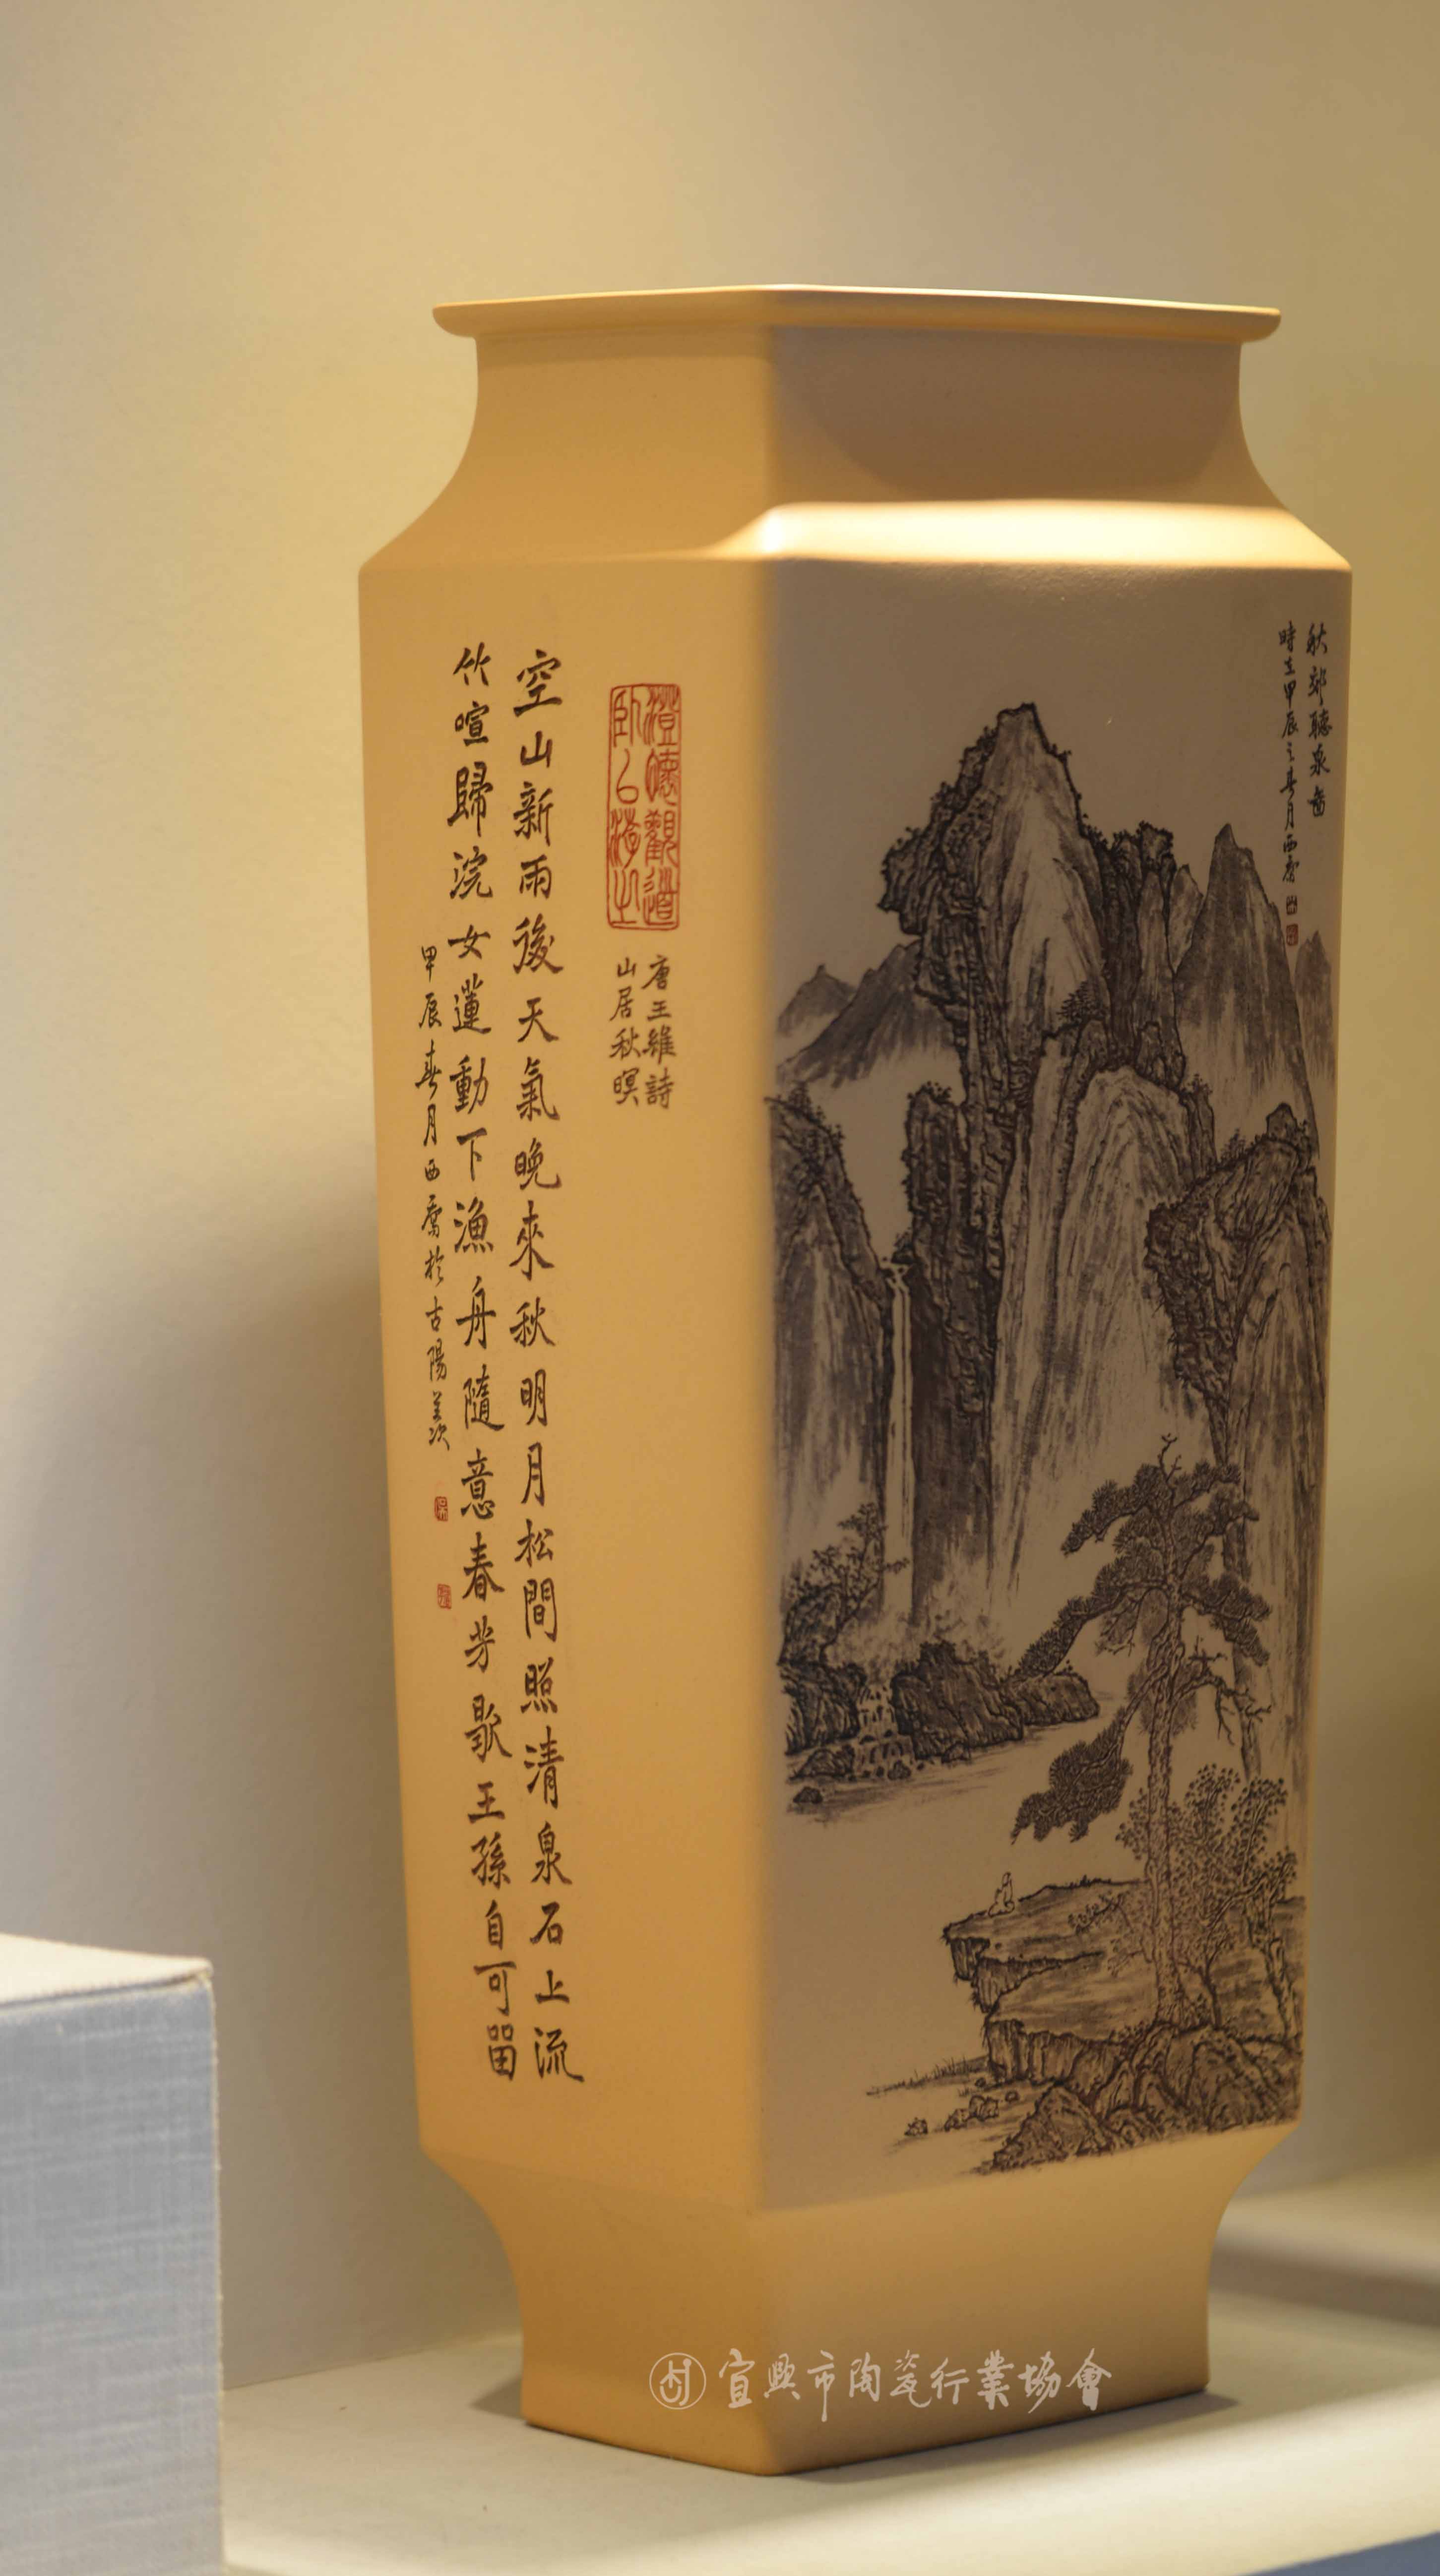 秋郊聽泉啚
時在甲辰之春月西喬
澄懷觀道
臥以游之
唐王維詩
山居秋暝
空山新雨後天氣晚來秋明月松間照清泉石上流
竹喧歸浣女蓮動下漁舟隨意春芳歇王孫自可畱
甲辰春月西喬於古陽羨
宜興市陶瓷行業協會